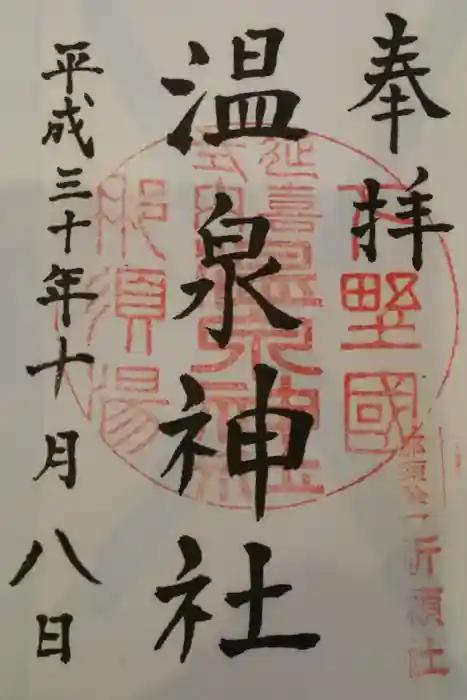 奉拝
下野國
延喜式内
温泉神社
温泉神社
那須湯
平成三十年十月八日
祈願社